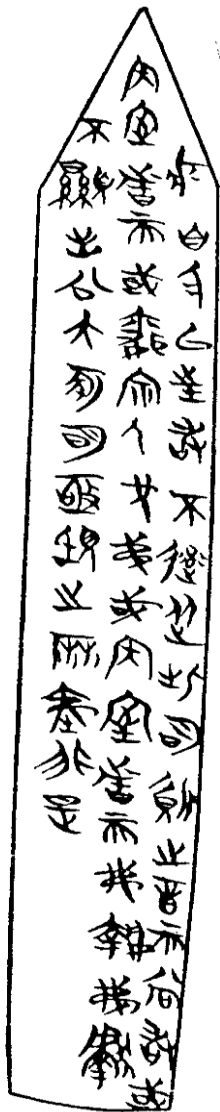 自今以往敢不率從此明質之言而尚敢或
内室者而或婚宗人兄弟或内室者而弗執弗獻
不顯出公大冢明亟視之麻夷非是